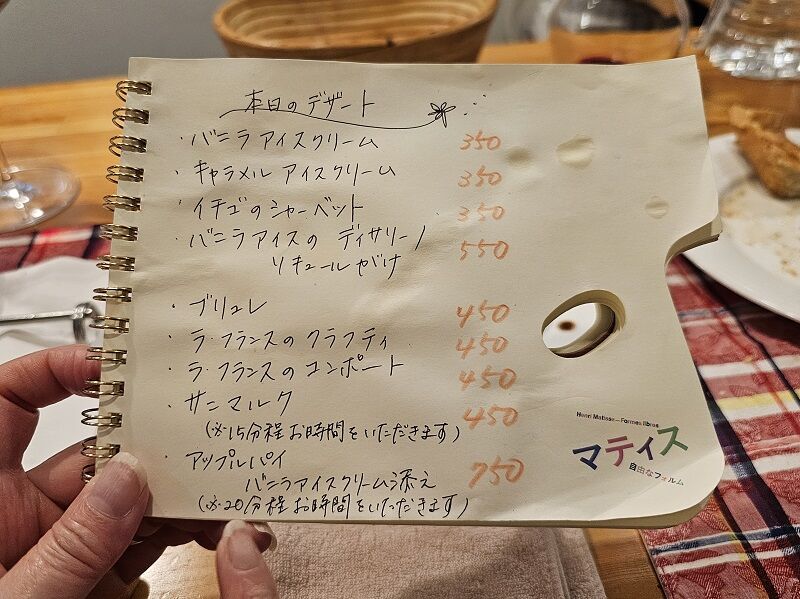 本日のデザート
・バニラアイスクリーム 350
・キャラメルアイスクリーム 350
・イチゴのシャーベット 350
・バニラアイスの ディサリーノ 550
リキュールがけ
・ブリュレ 450
・ラ・フランスのクラフティ 450
・ラ・フランスのコンポート 450
・サンマルク 450
(※15分程お時間をいただきます)
・アップルパイ 750
バニラアイスクリーム添え
(※20分程お時間をいただきます)
Henri Matisse—Formes libres
マティス
自由なフォルム